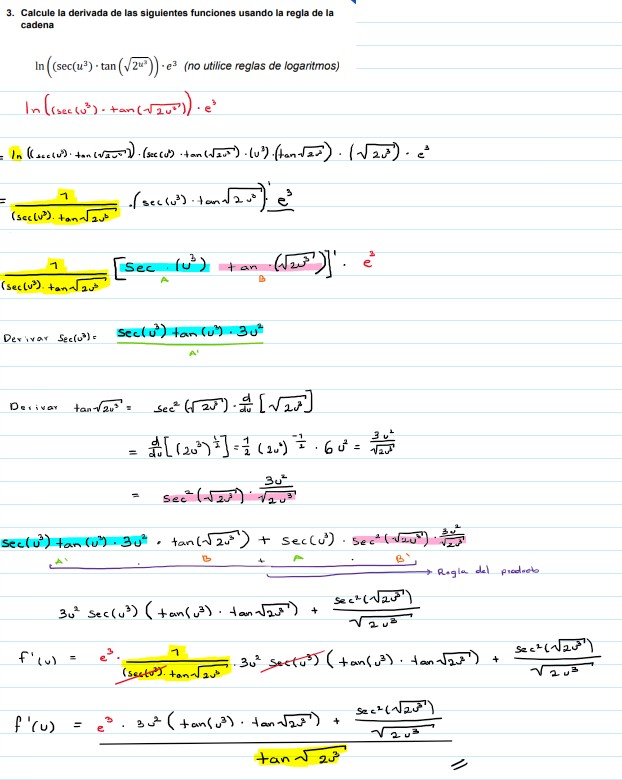 3. Calcule la derivada de las siguientes funciones usando la regla de la
cadena
ln((sec(u³) · tan(√2u³)) · e³ (no utilice reglas de logaritmos)
ln((sec(u³) · tan(√2u³)) · e³
= ln((sec(u³) · tan(√2u³)) · (sec(u³) · tan(√2u³) · (u³) · (tan√2u³) · (√2u³) · e³
= 1/((sec(u³) · tan√2u³) · (sec(u³) · tan√2u³)' e³
1/((sec(u³) · tan√2u³) [sec · (u³) tan · (√2u³)]' · e³
A B
Derivar sec(u³) = sec(u³) tan(u³) · 3u²
A'
Derivar tan√2u³ = sec²(√2u³) · d/du [√2u³]
= d/du [(2u³)^1/2] = 1/2 (2u³)^-1/2 · 6u² = 3u²/√2u³
= sec²(√2u³) · 3u²/√2u³
sec(u³) tan(u³) · 3u² · tan(√2u³) + sec(u³) · sec²(√2u³) · 3u²/√2u³
A' · B + A · B'
Regla del producto
3u² sec(u³) (tan(u³) · tan√2u³) + sec²(√2u³)/√2u³
f'(u) = e³ · 1/((sec(u³) · tan√2u³) · 3u² sec(u³) (tan(u³) · tan√2u³) + sec²(√2u³)/√2u³
f'(u) = e³ · 3u² (tan(u³) · tan√2u³) + sec²(√2u³)/√2u³
tan√2u³